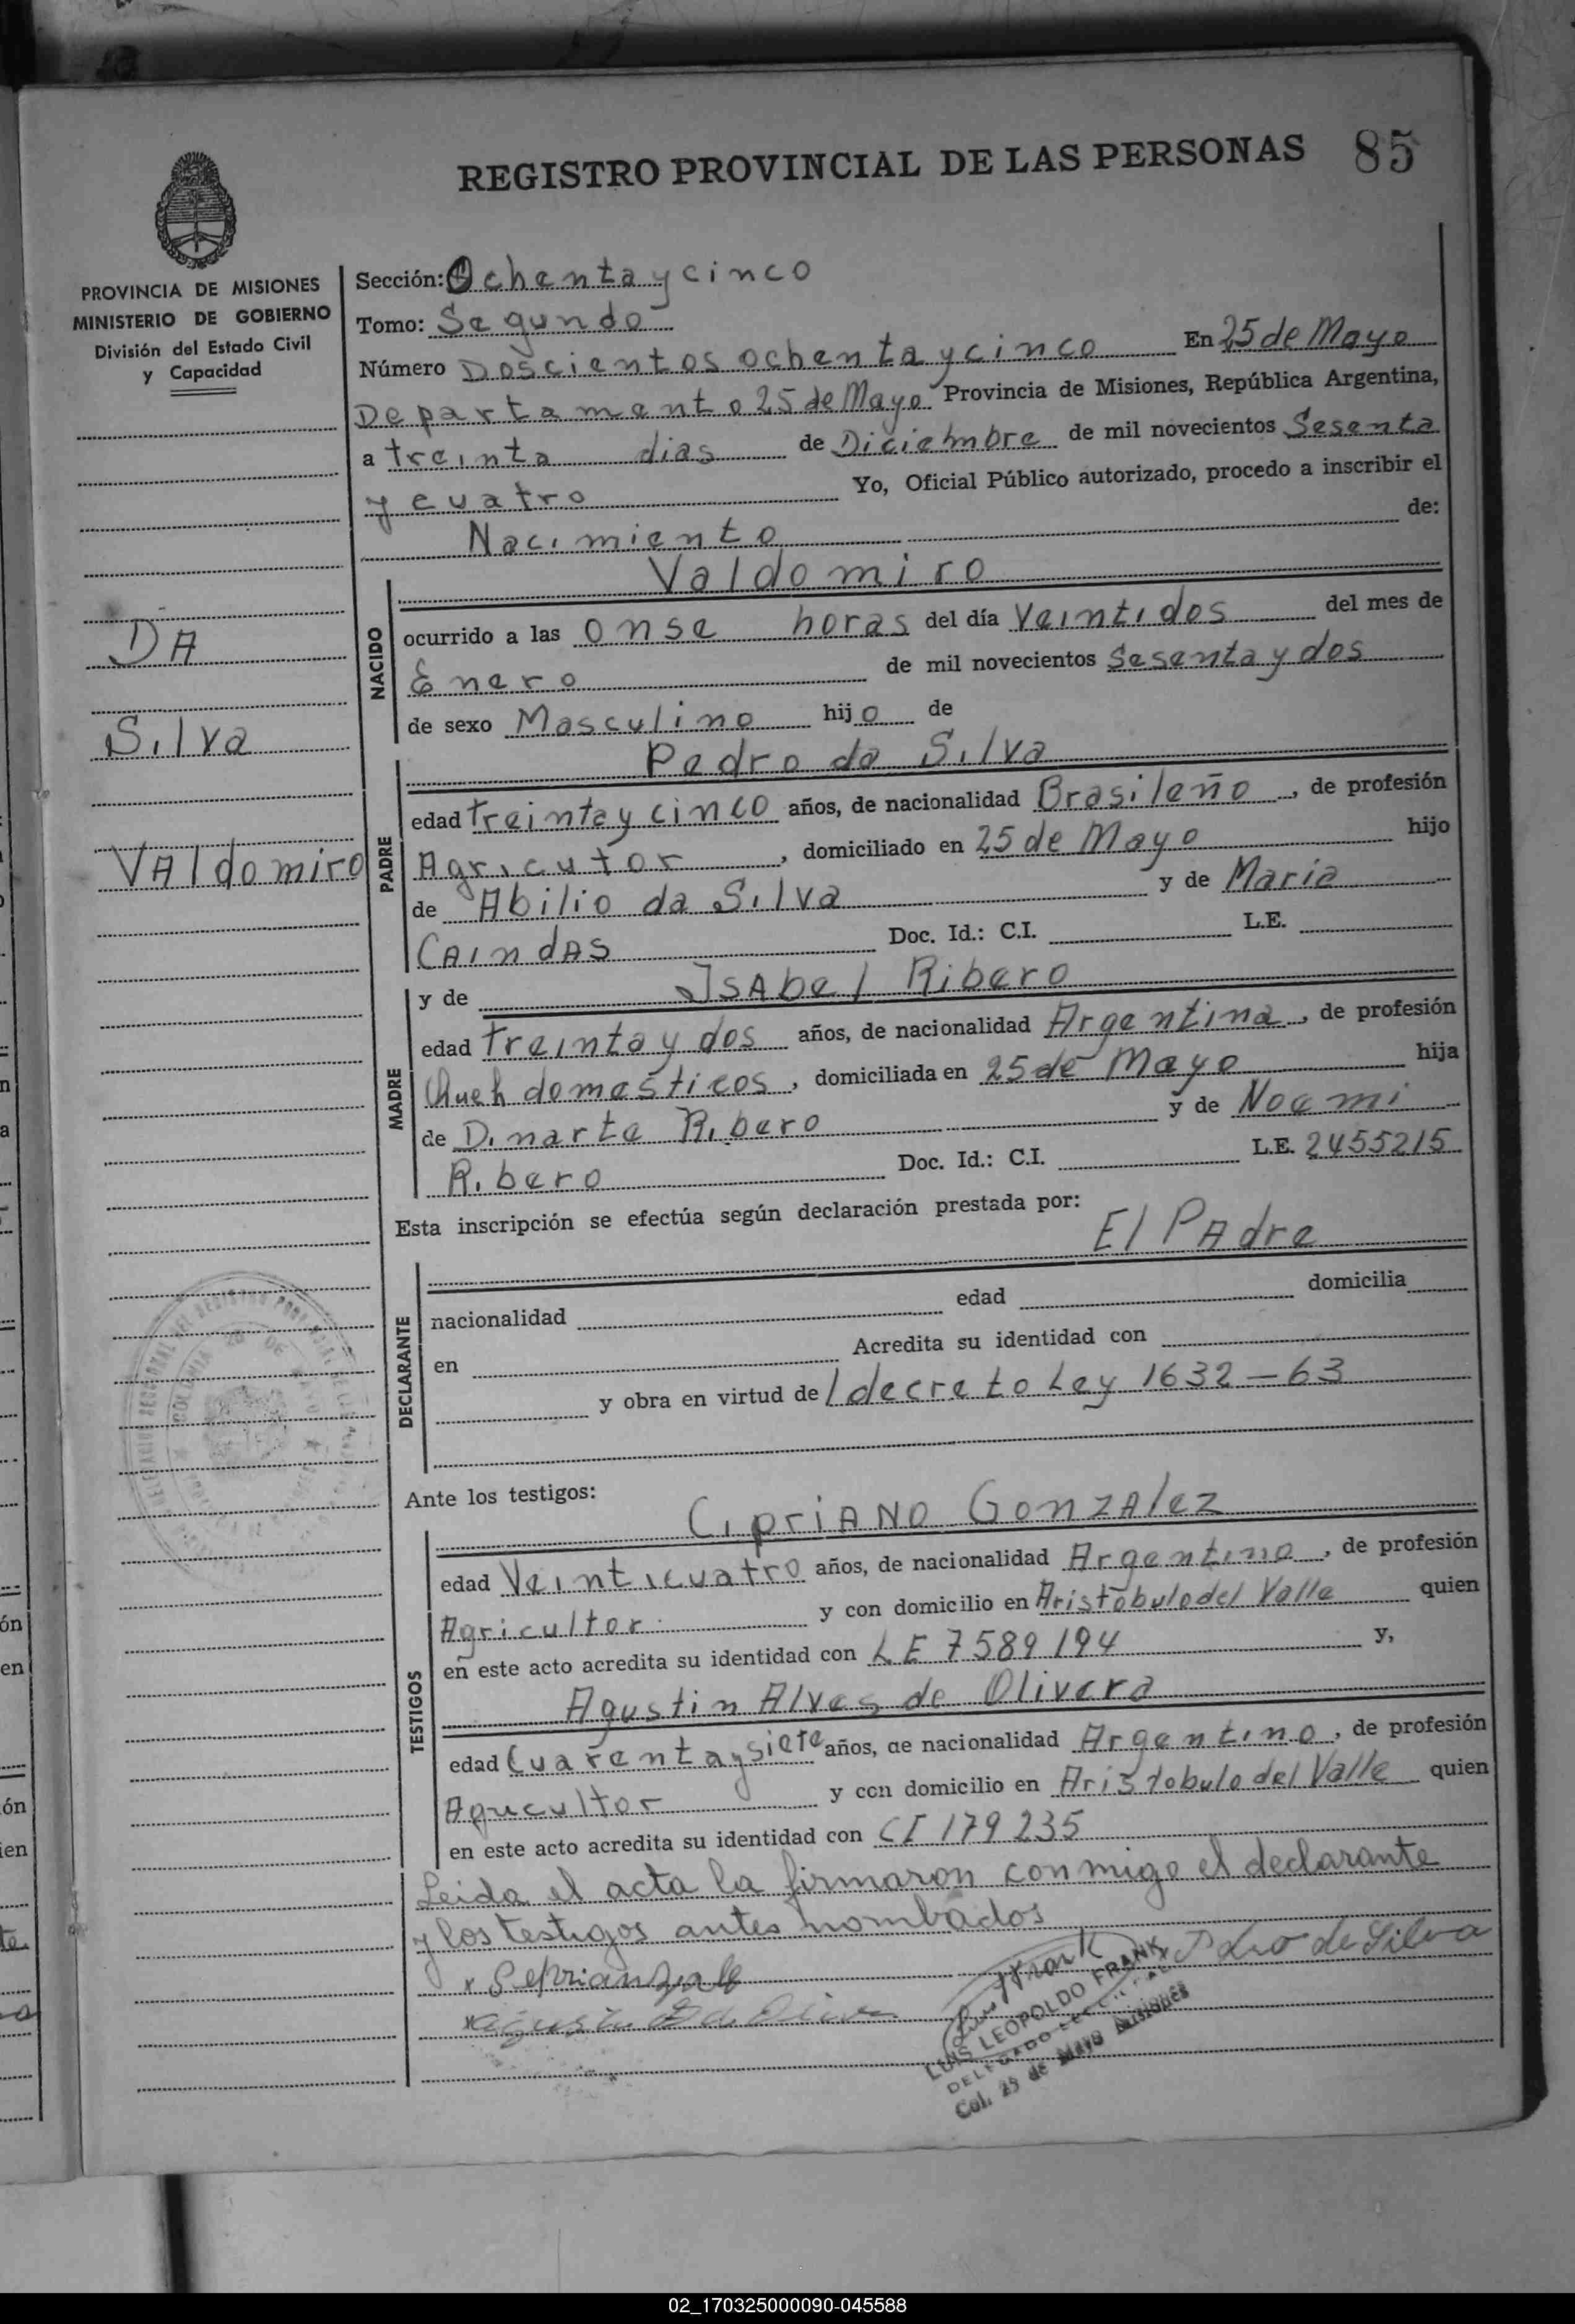 REGISTRO PROVINCIAL DE LAS PERSONAS 85
PROVINCIA DE MISIONES
MINISTERIO DE GOBIERNO
División del Estado Civil
y Capacidad
DA
Silva
VAldomiro
Sección: Ochenta y cinco
Tomo: Segundo
Número Doscientos ochenta y cinco En 25 de Mayo
Departamento 25 de Mayo Provincia de Misiones, República Argentina,
a treinta dias de Diciembre de mil novecientos Sesenta
y cuatro Yo, Oficial Público autorizado, procedo a inscribir el
Nacimiento de:
NACIDO
Valdomiro
ocurrido a las onse horas del día Veintidos del mes de
Enero de mil novecientos Sesenta y dos
de sexo Masculino hijo de
PADRE
Pedro da Silva
edad treinta y cinco años, de nacionalidad Brasileño, de profesión
Agricutor, domiciliado en 25 de Mayo hijo
de Abilio da Silva y de Maria
CAIndAS Doc. Id.: C.I. L.E.
MADRE
y de ISAbel Ribero
edad treinta y dos años, de nacionalidad Argentina, de profesión
Queh domesticos, domiciliada en 25 de Mayo hija
de Dinarte Ribero y de Noemi
Ribero Doc. Id.: C.I. L.E. 2455215
Esta inscripción se efectúa según declaración prestada por:
El PAdre
DECLARANTE
nacionalidad edad domicilia
en Acredita su identidad con
y obra en virtud del decreto Ley 1632-63
Ante los testigos:
TESTIGOS
CipriANO GonzAlez
edad Veinticuatro años, de nacionalidad Argentino, de profesión
Agricultor y con domicilio en Aristobulo del Valle quien
en este acto acredita su identidad con LE 7589194 y,
Agustin Alves de Olivera
edad Cuarenta y siete años, de nacionalidad Argentino, de profesión
Agricultor y con domicilio en Aristobulo del Valle quien
en este acto acredita su identidad con CI 179235
Leida el acta la firmaron conmigo el declarante
y los testigos antes nombados
Pedro de Silva
LUIS LEOPOLDO FRANK
Col. 25 de Mayo Misiones
02_170325000090-045588